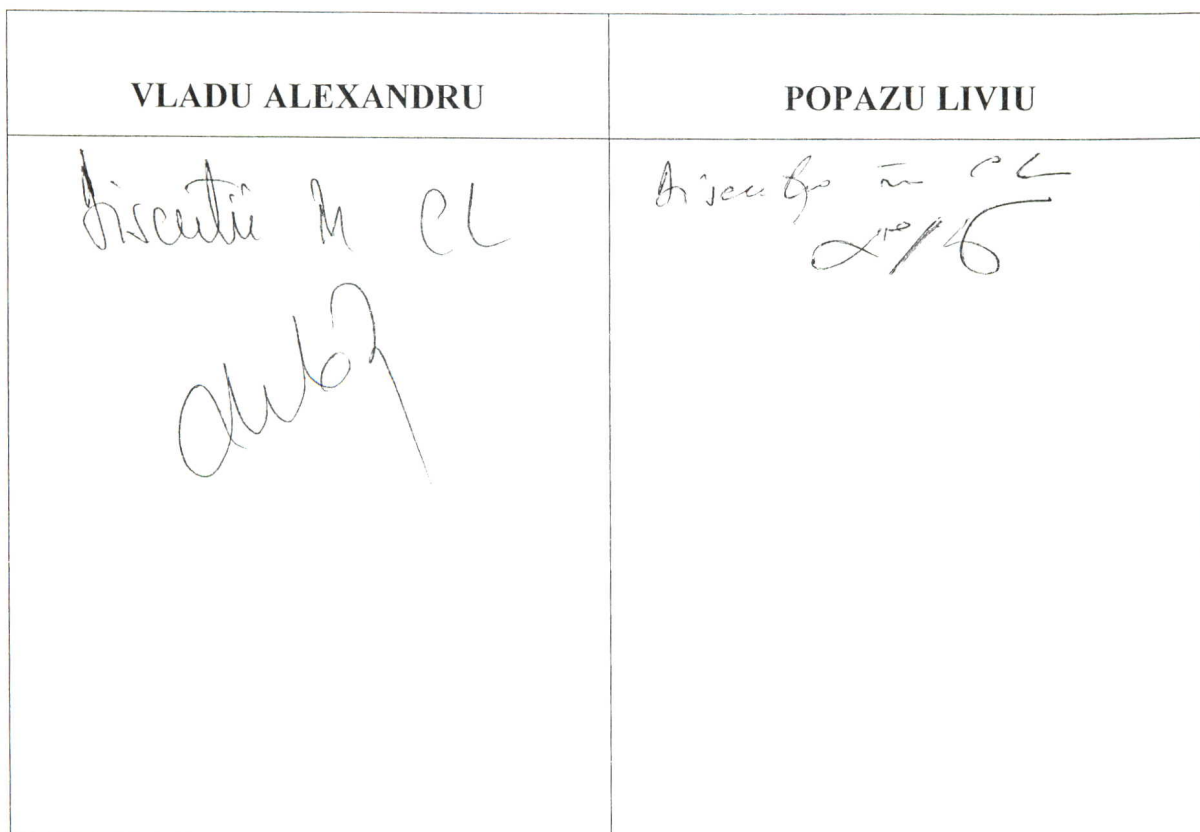 VLADU ALEXANDRU
POPAZU LIVIU
Discutii în CL
Discuții în CL